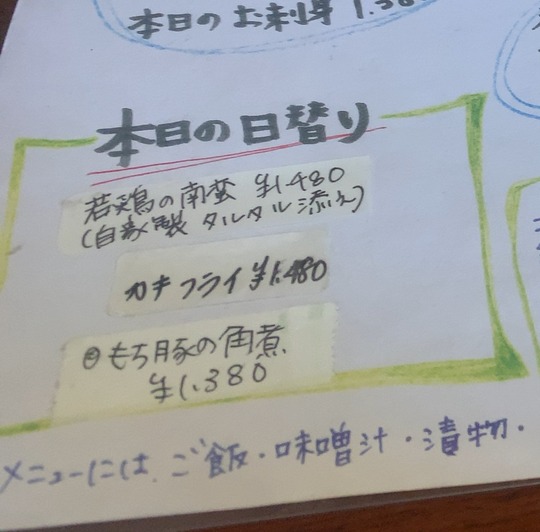 本日のお刺身
本日の日替り
若鶏の南蛮 ¥1.480
(自家製 タルタル 添え)
カキフライ ¥1.480
もち豚の角煮
¥1.380
メニューには、ご飯・味噌汁・漬物・